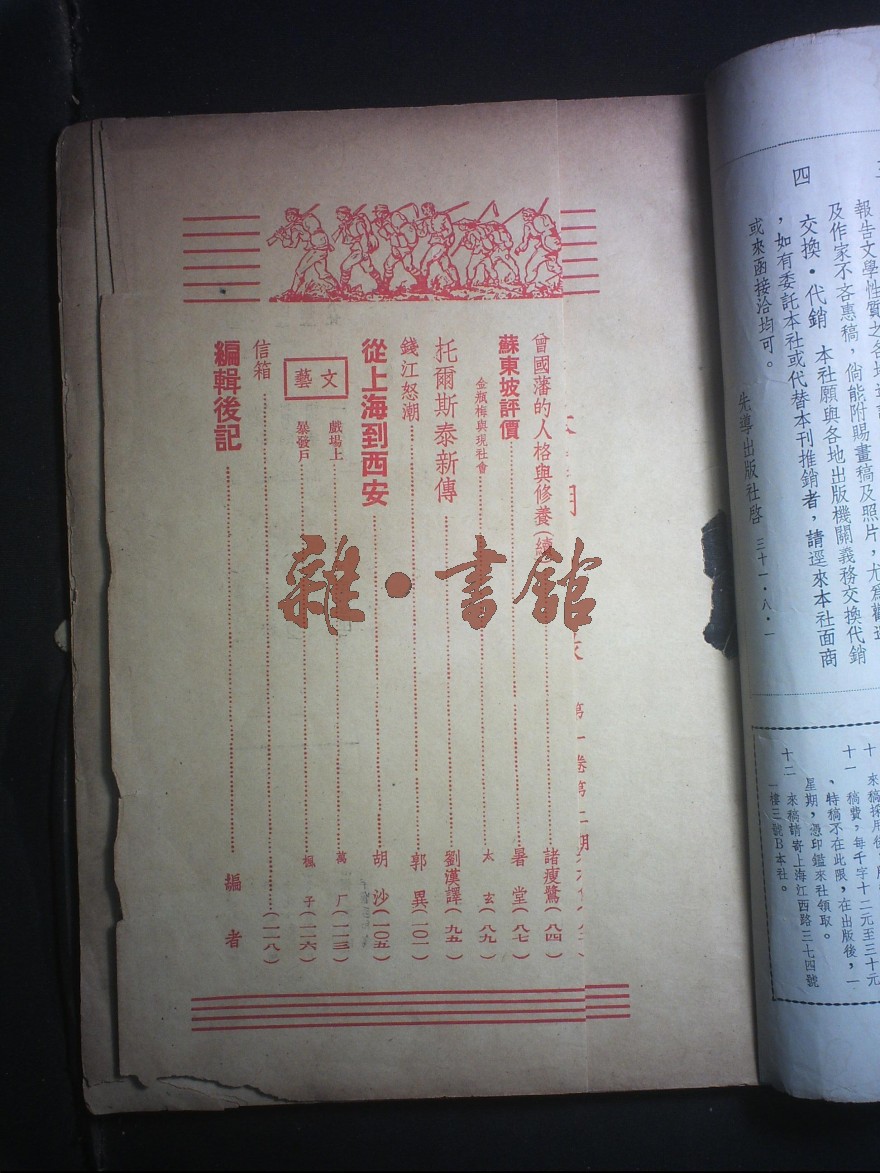 三
報告文學性質之各地
及作家不吝惠稿，倘能附賜畫稿及照片，尤為歡迎
四　交換・代銷　本社願與各地出版機關義務交換代銷
，如有委託本社或代替本刊推銷者，請逕來本社面商
或來函接洽均可。
先導出版社啓　三十一・八・一
十　來稿採用後
十一　稿費，每千字十二元至三十元
、特稿不在此限，在出版後，一
星期，憑印鑑來社領取。
十二　來稿請寄上海江西路三七四號
一樓三號B本社。
第一卷第二期
曾國藩的人格與修養（續 諸瘦鷺（八四）
蘇東坡評價 暑堂（八七）
金瓶梅與現社會 太玄（八九）
托爾斯泰新傳 劉漢譯（九五）
錢江怒潮 郭異（一〇一）
從上海到西安 胡沙（一〇五）
文藝
戲場上 萬厂（一一三）
暴發戶 楓子（一一六）
信箱（一一八）
編輯後記 編者
雜・書館